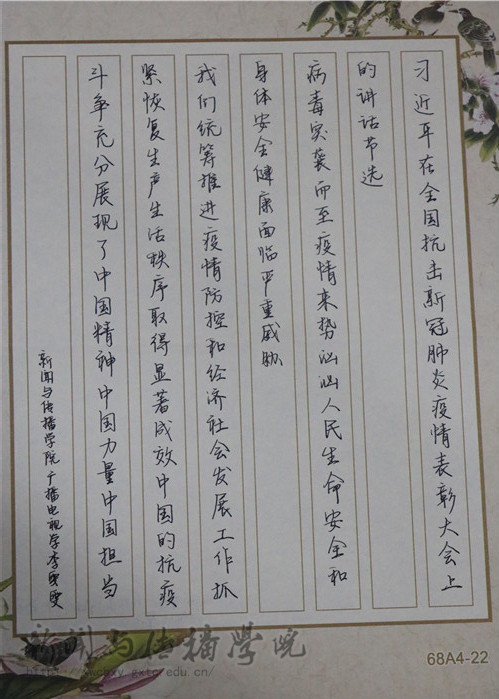 习近平在全国抗击新冠肺炎疫情表彰大会上
的讲话节选
病毒突袭而至疫情来势汹汹人民生命安全和
身体安全健康面临严重威胁
我们统筹推进疫情防控和经济社会发展工作抓
紧恢复生产生活秩序取得显著成效中国的抗疫
斗争充分展现了中国精神中国力量中国担当
新闻与传播学院广播电视学李雯雯
新闻与传播学院
68A4-22